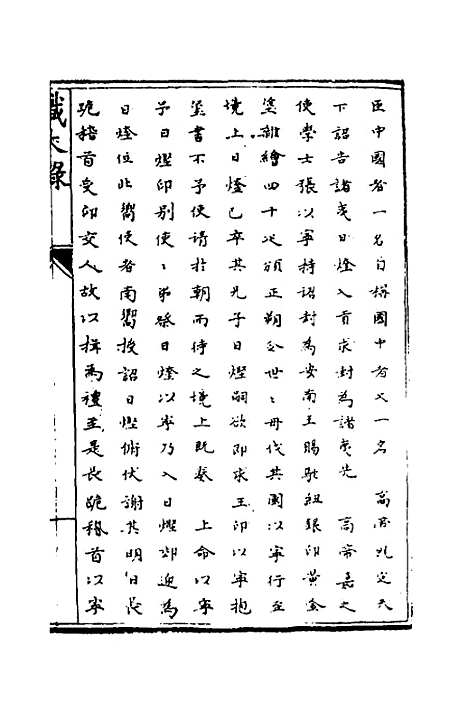 臣中國者一名自稱國中者又一名　高帝既定天
下詔告諸夷日煃入貢求封為諸夷先　高帝嘉之
使學士張以寧持詔封為安南王賜駝紐銀印黃金
塗雜繒四十疋頒正朔令世〻毋伐其國以寧行至
境上日煃已卒其兄子日熞嗣欲即求王印以寧抱
璽書不予使請於朝而待之境上既奏　上命以寧
予日熞印別使〻弔祭日煃以寧乃入日熞郊迎為
日煃位北嚮使者南嚮授詔日熞俯伏謝其明日長
跪稽首受印交人故以揖為禮至是長跪稽首以寧
識大錄